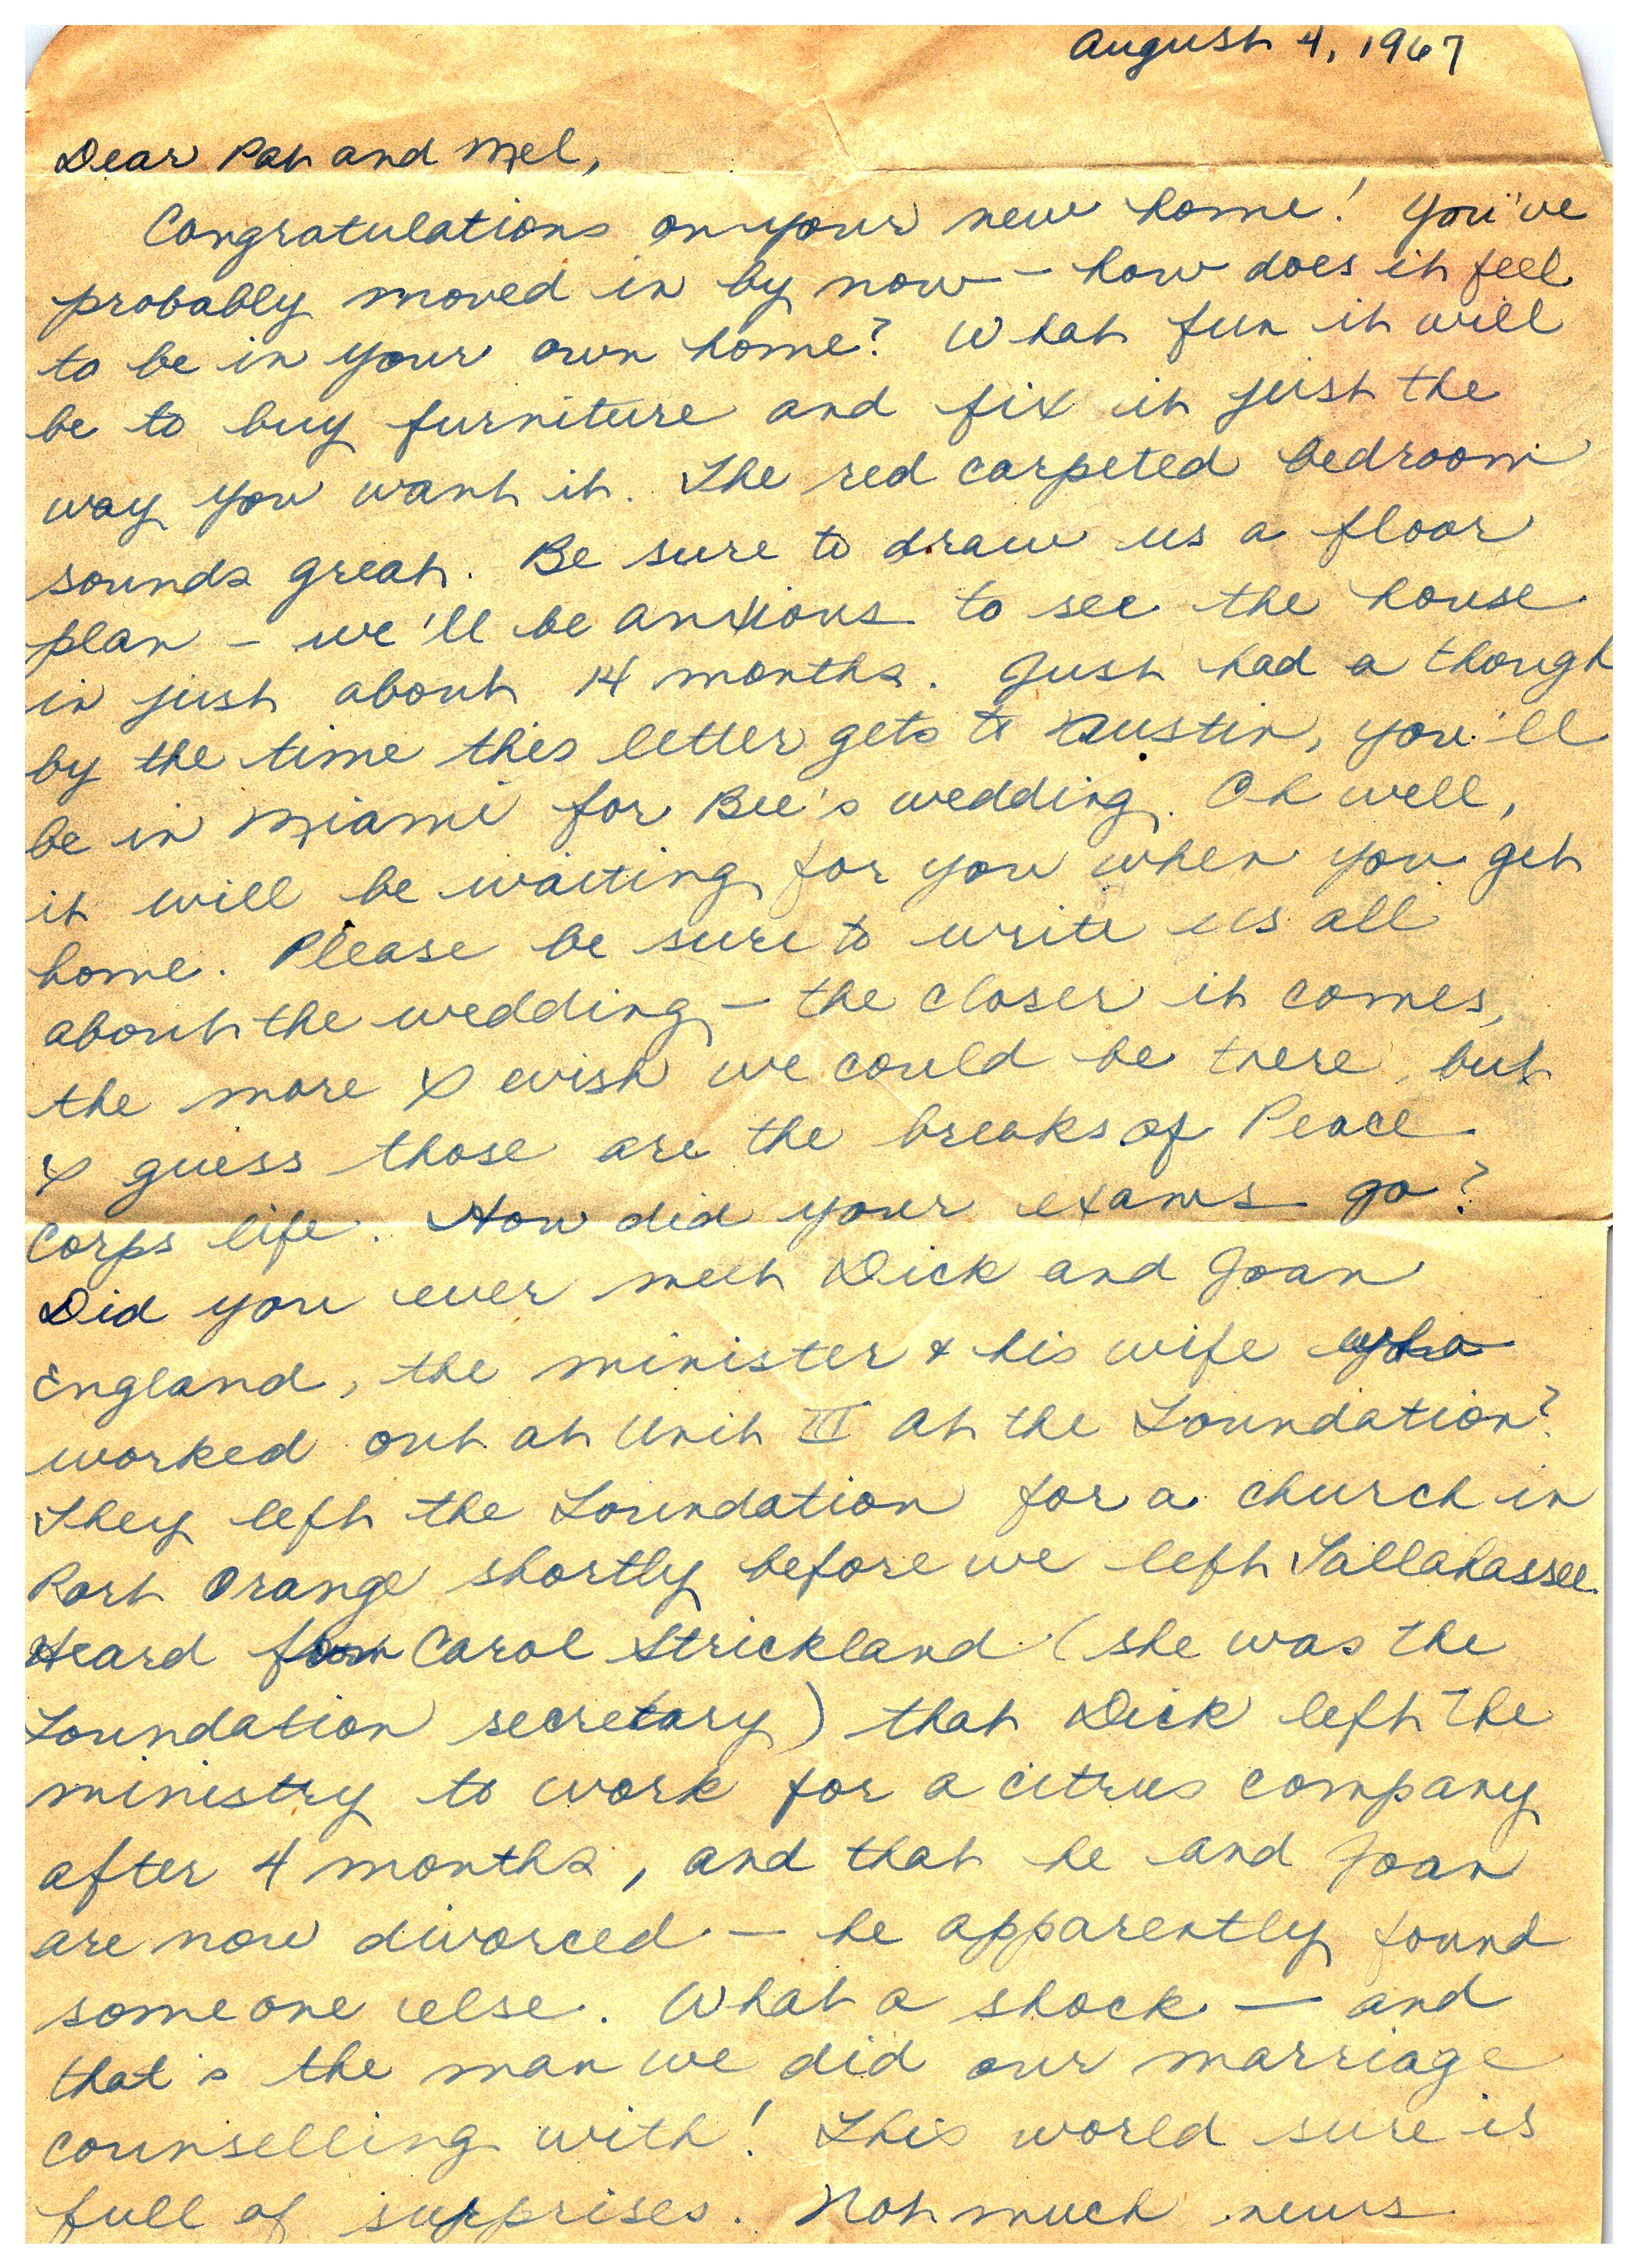 August 4, 1967
Dear Pat and Mel,
Congratulations on your new home! You've
probably moved in by now - how does it feel
to be in your own home? What fun it will
be to buy furniture and fix it just the
way you want it. The red carpeted bedroom
sounds great. Be sure to draw us a floor
plan - we'll be anxious to see the house
in just about 14 months. Just had a though
by the time this letter gets to Austin, you'll
be in Miami for Bee's wedding. Oh well,
it will be waiting for you when you get
home. Please be sure to write us all
about the wedding - the closer it comes,
the more I wish we could be there, but
I guess those are the breaks of Peace
Corps life. How did your exams go?
Did you ever meet Dick and Joan
England, the minister & his wife who
worked out at Unit III at the Foundation?
They left the Foundation for a church in
Port Orange shortly before we left Tallahassee.
Heard from Carol Strickland (she was the
Foundation secretary) that Dick left the
ministry to work for a citrus company
after 4 months, and that he and Joan
are now divorced - he apparently found
someone else. What a shock - and
that's the man we did our marriage
counselling with! This world sure is
full of surprises. Not much news